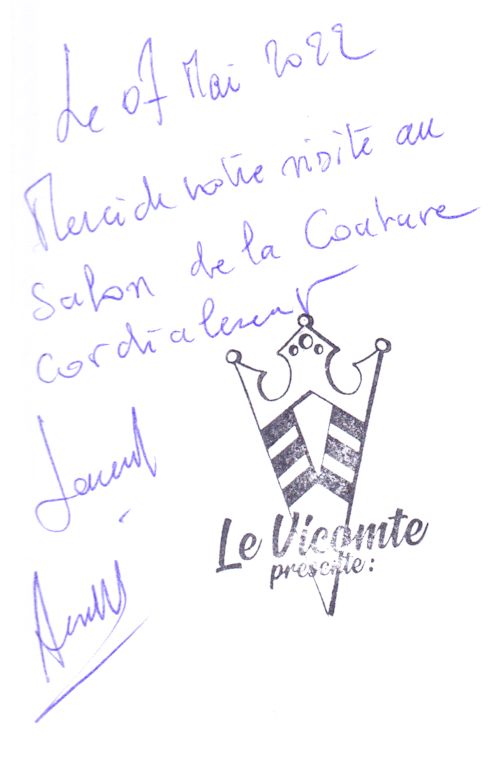 Le 07 Mai 2022
Merci de votre visite au
Salon de la Couture
Cordialement
Laurent
Le Vicomte
présente :